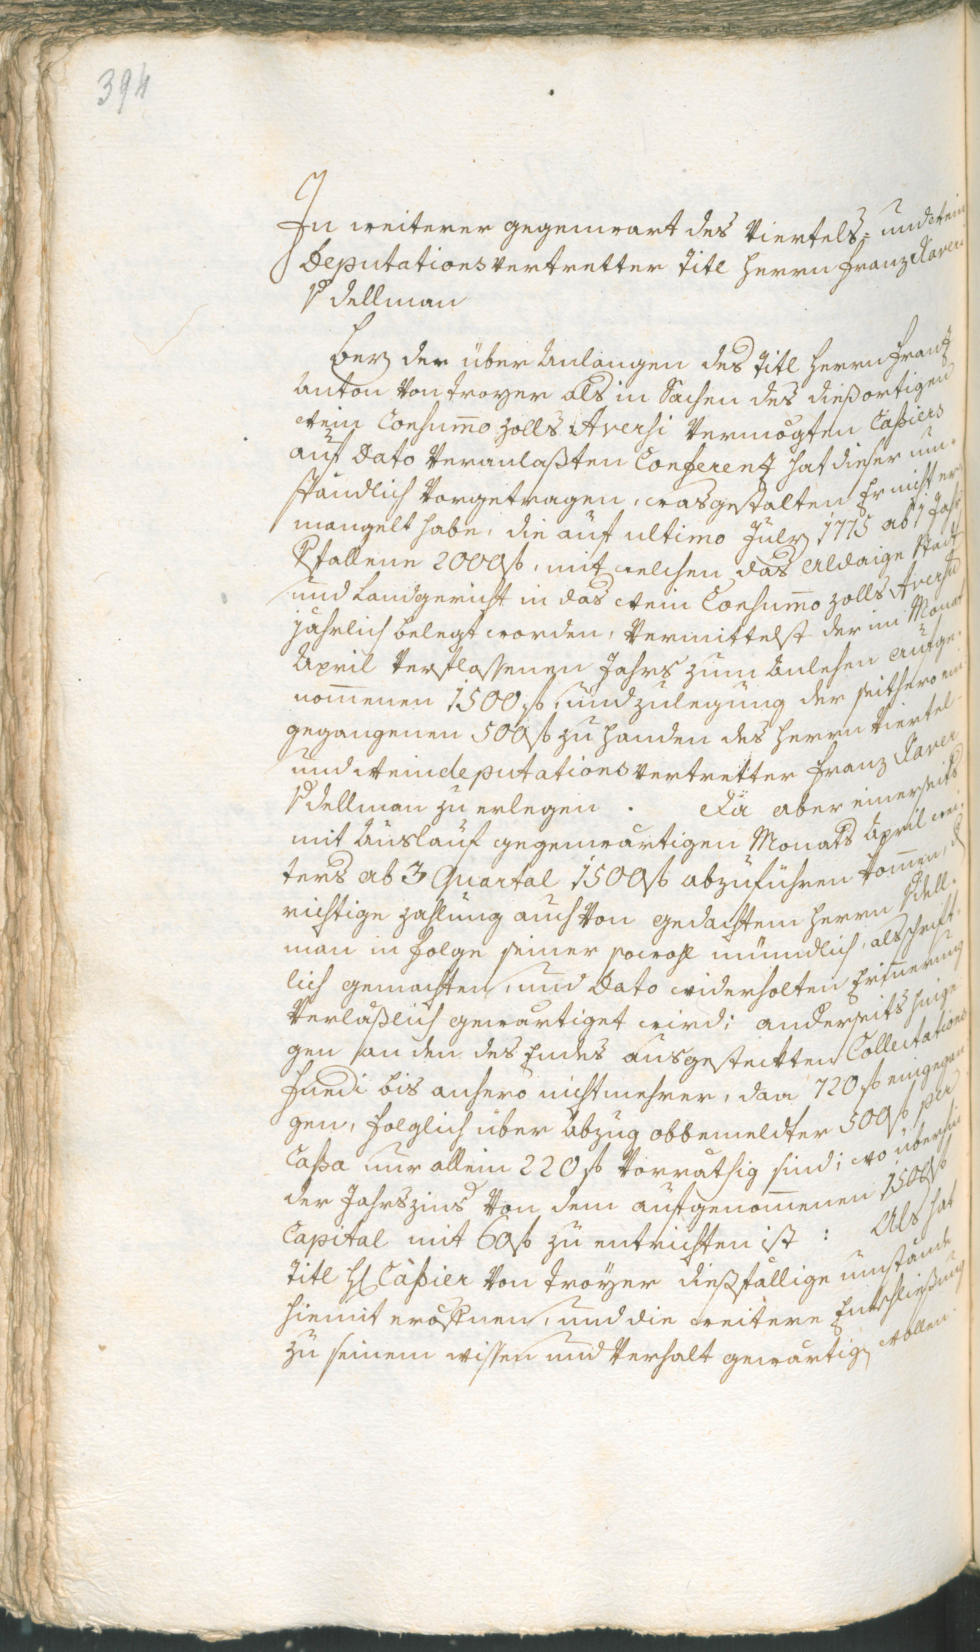 394
In weiterer gegenwart des Viertels- und wein
Deputationsvertretter Titl Herrn Franz Xaveri
Bey der über Anlangen des Titl Herrn Frantz
Anton von Troyer als in Sachen des diessortigen
Wein Consumo zolls Aversi Vermögten Cassiers
auf Dato Veranlaßten Conferenz hat dieser um-
ständlich Vorgetragen, wasgestalten Er nicht er-
mangelt habe, die auf ultimo July 1775 ab 1 Jahr
2000 f, mit welchen das alldaige Stadt
und Landgericht in das Wein Consumo zolls Aversu
jährlich belegt worden, Vermittelst der im Monat
April Verflossenen Jahrs zum Anlehen aufge-
nommenen 1500 f, und zulegung der seithero ein
gegangenen 500 f zu handen des Herrn Viertel-
und Weindeputationsvertretter Franz Xaver
zu erlegen. Da aber einerseits
mit Auslauf gegenwärtigen Monats April wei-
ters ab 3 Quartal 1500 f abzuführen kommen, d
richtige zahlung auch Von gedachtem Herrn
man in folge seiner sowohl mündlich, als schrift-
lich gemachten, und Dato widerholten Erinnerung
Verläßlich gewärtiget wird; anderseits hinge-
gen an den des Endes ausgesteckten Collectations
Fundi bis anhero nicht mehrer, dan 720 f eingegan
gen, folglich über Abzug obbemeldter 500 f per
Cassa nur allein 220 f Vorräthig sind; wo überhin
der Jahrszins Von dem aufgenommenen 1500 f
Capital mit 60 f zu entrichten ist: Als hat
Titl H Cassier Von Troyer dießfällige umstände
hiemit eröffnen, und die weitere Entschließung
zu seinem wissen und Verhalt gewärtigen wollen.